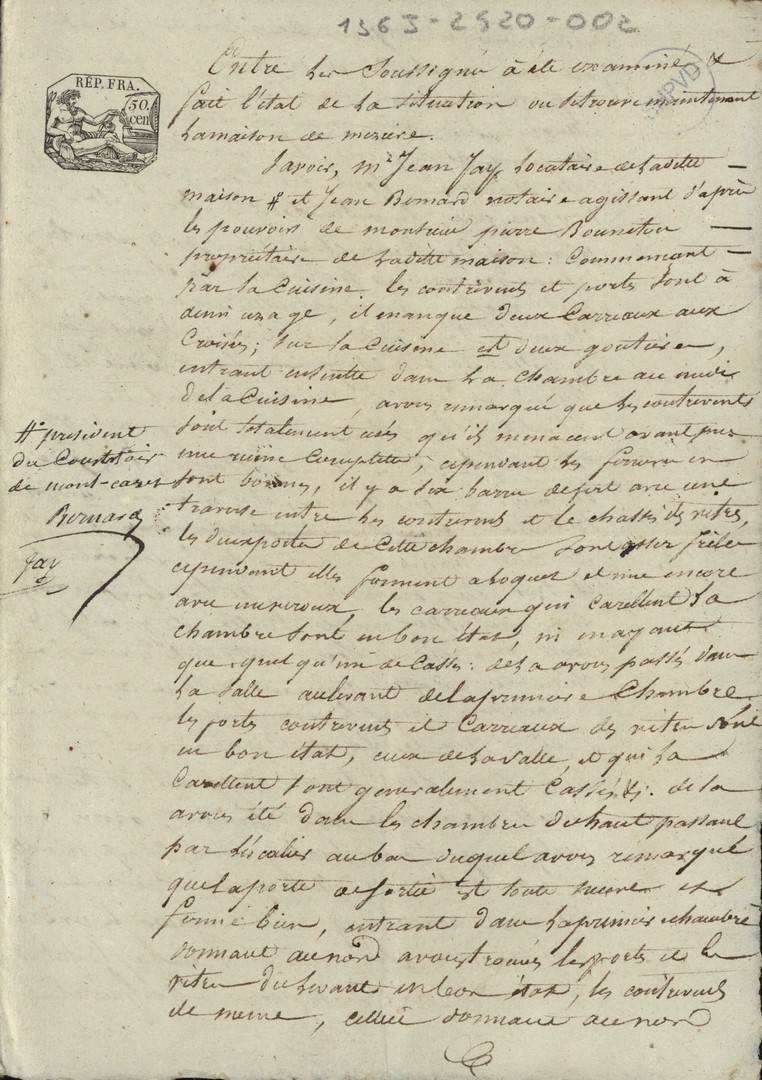 1363-2920-002
RÉP. FRA.
50
cen
Entre les Soussigné à été examiné &
fait l'état de la situation ou se trouve maintenant
la maison de meziere.
Savoir, mr Jean Jay locataire de la ditte
maison # et Jean Bernard notaire agissant d'après
les pouvoirs de monsieur pierre Bouneton
propriétaire de la ditte maison : Commencant
par la Cuisine les contrevents et ports sont à
demi uzage, il manque deux Carreaux aux
Croisés ; sur la Cuisine est deux goutiere,
entrant ensuitte dans la chambre au midi
de la Cuisine, avons remarqué que les contrevents
sont totalement usés qu'ils menacent avant peu
une ruine Complette, cependant les ferrures en
sont bonnes, il y a six barre de fert avec une
traverse entre les contrevents et le chassis des vitres,
les deux porte de Cette chambre sont asser frêle
cependant elles ferment a loquet et une encore
avec un verroux, les carreaux qui Carellent la
chambre sont en bon état, ni en ayant
que quelqu'un de Cassés : de la avons passés dans
la Salle au levant de la premiere Chambre
les ports contrevents et Carreaux des vitres sont
en bon état, ceux de la Salle, et qui la
Carellent sont generalement Cassés &. de la
avons été dans les chambres du haut passant
par l'éscalier au bas duquel avons remarqué
que la porte de sortie est toute neuve et
ferme bien, entrant dans la premier chambre
donnant au nord avons trouvés les ports et les
vitres du levant en bon état, les contrevents
de meme, cellui donnant au nord
# president
du Consistoir
de mont-caret
Bernard
Jay